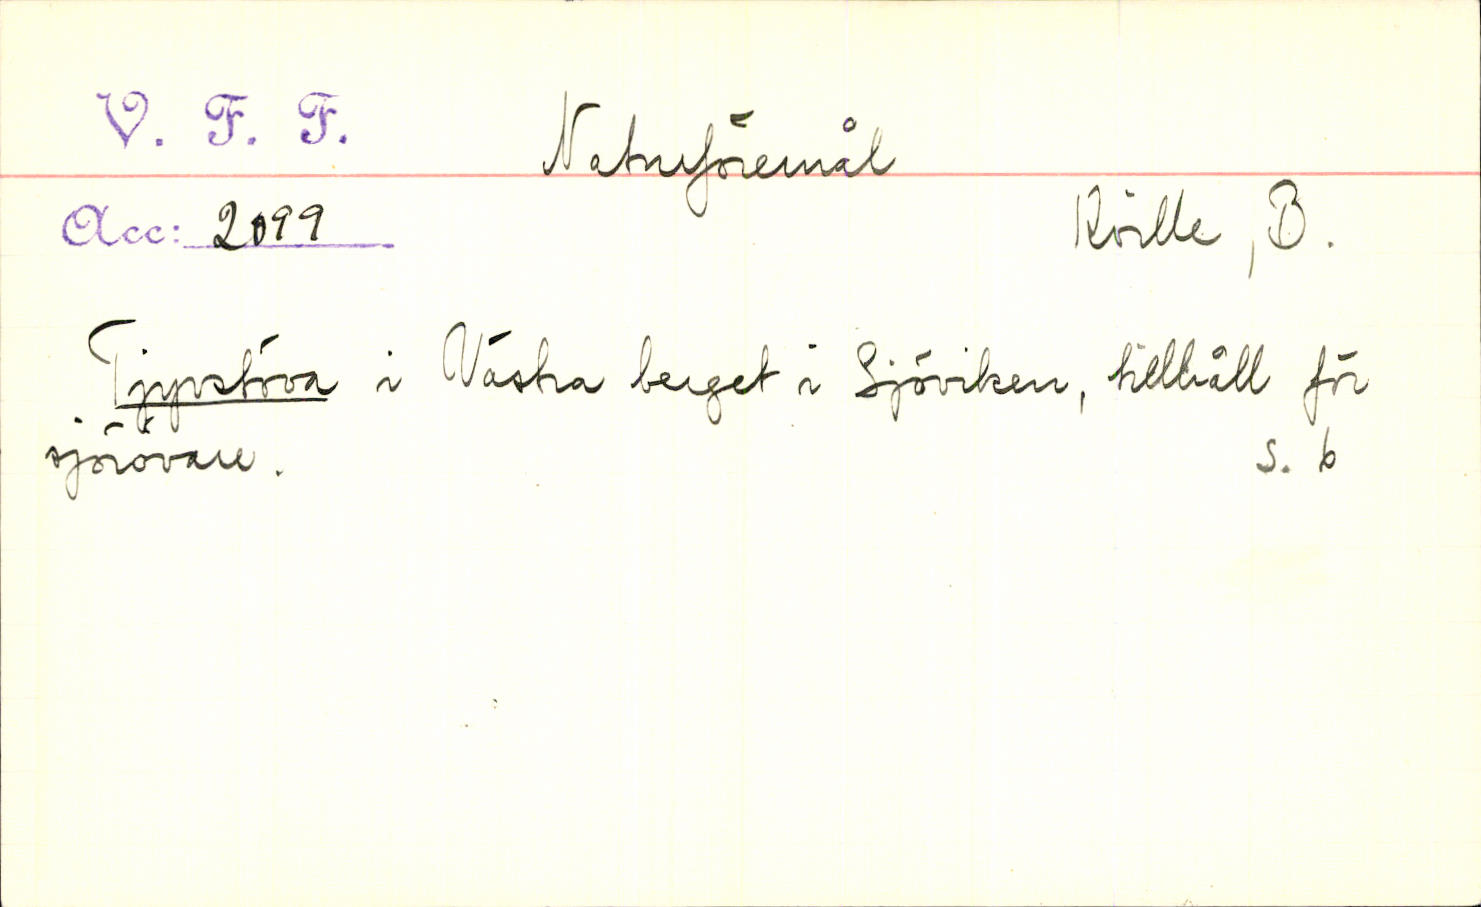 V. F. F.
Naturföremål
Acc: 2099
Körlle, B.
Tjyvstöva i Västra berget i Sjöviken, tillhåll för
sjörövare.
s. 6